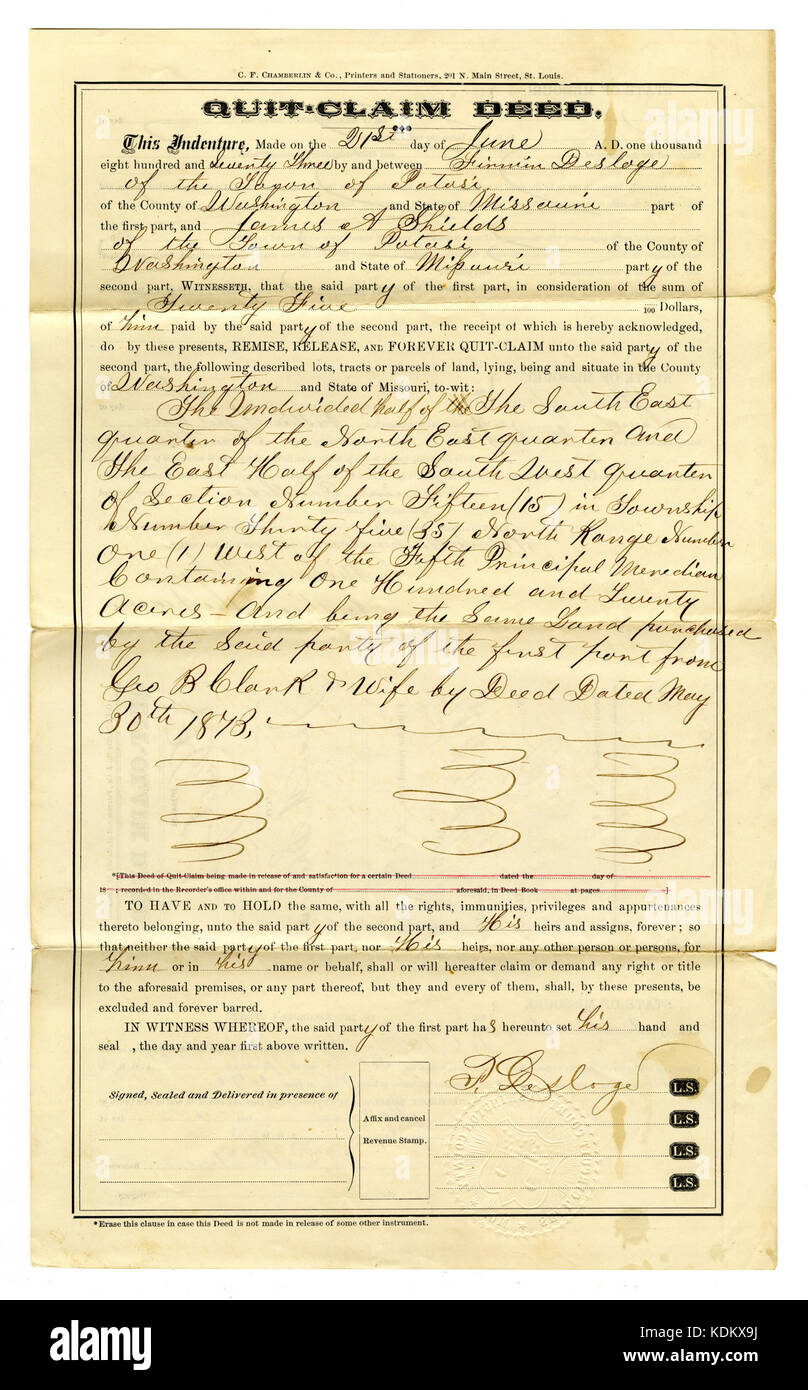 C. F. Chamberlin & Co., Printers and Stationers, 201 N. Main Street, St. Louis.
QUIT-CLAIM DEED.
This Indenture, Made on the 21st day of June A. D. one thousand
eight hundred and Seventy Three by and between Firmin Desloge
of the Town of Potosi
of the County of Washington and State of Missouri part of
the first part, and James A Shields
of the Town of Potosi of the County of
Washington and State of Missouri party of the
second part, WITNESSETH, that the said party of the first part, in consideration of the sum of
Twenty Five /100 Dollars,
of him paid by the said party of the second part, the receipt of which is hereby acknowledged,
do by these presents, REMISE, RELEASE, AND FOREVER QUIT-CLAIM unto the said party of the
second part, the following described lots, tracts or parcels of land, lying, being and situate in the County
of Washington and State of Missouri, to-wit:
The Undivided half of the The South East
quarter of the North East quarter and
The East Half of the South West quarter
of Section Number Fifteen (15) in Township
Number Thirty five (35) North Range Number
One (1) West of the Fifth Principal Meredian
Containing One Hundred and Twenty
Acres - And being the Same Land purchased
by the Said party of the first part from
Geo B Clark & Wife by Deed Dated May
30th 1873.
*[This Deed of Quit-Claim being made in release of and satisfaction for a certain Deed dated the day of
18 ; recorded in the Recorder's office within and for the County of aforesaid, in Deed Book at pages ]
TO HAVE AND TO HOLD the same, with all the rights, immunities, privileges and appurtenances
thereto belonging, unto the said party of the second part, and His heirs and assigns, forever; so
that neither the said party of the first part, nor His heirs, nor any other person or persons, for
him or in his name or behalf, shall or will hereafter claim or demand any right or title
to the aforesaid premises, or any part thereof, but they and every of them, shall, by these presents, be
excluded and forever barred.
IN WITNESS WHEREOF, the said party of the first part has hereunto set his hand and
seal , the day and year first above written.
F. Desloge L.S.
Signed, Sealed and Delivered in presence of
Affix and cancel
Revenue Stamp.
L.S.
L.S.
L.S.
*Erase this clause in case this Deed is not made in release of some other instrument.
alamy
Image ID: KDKX9J
www.alamy.com